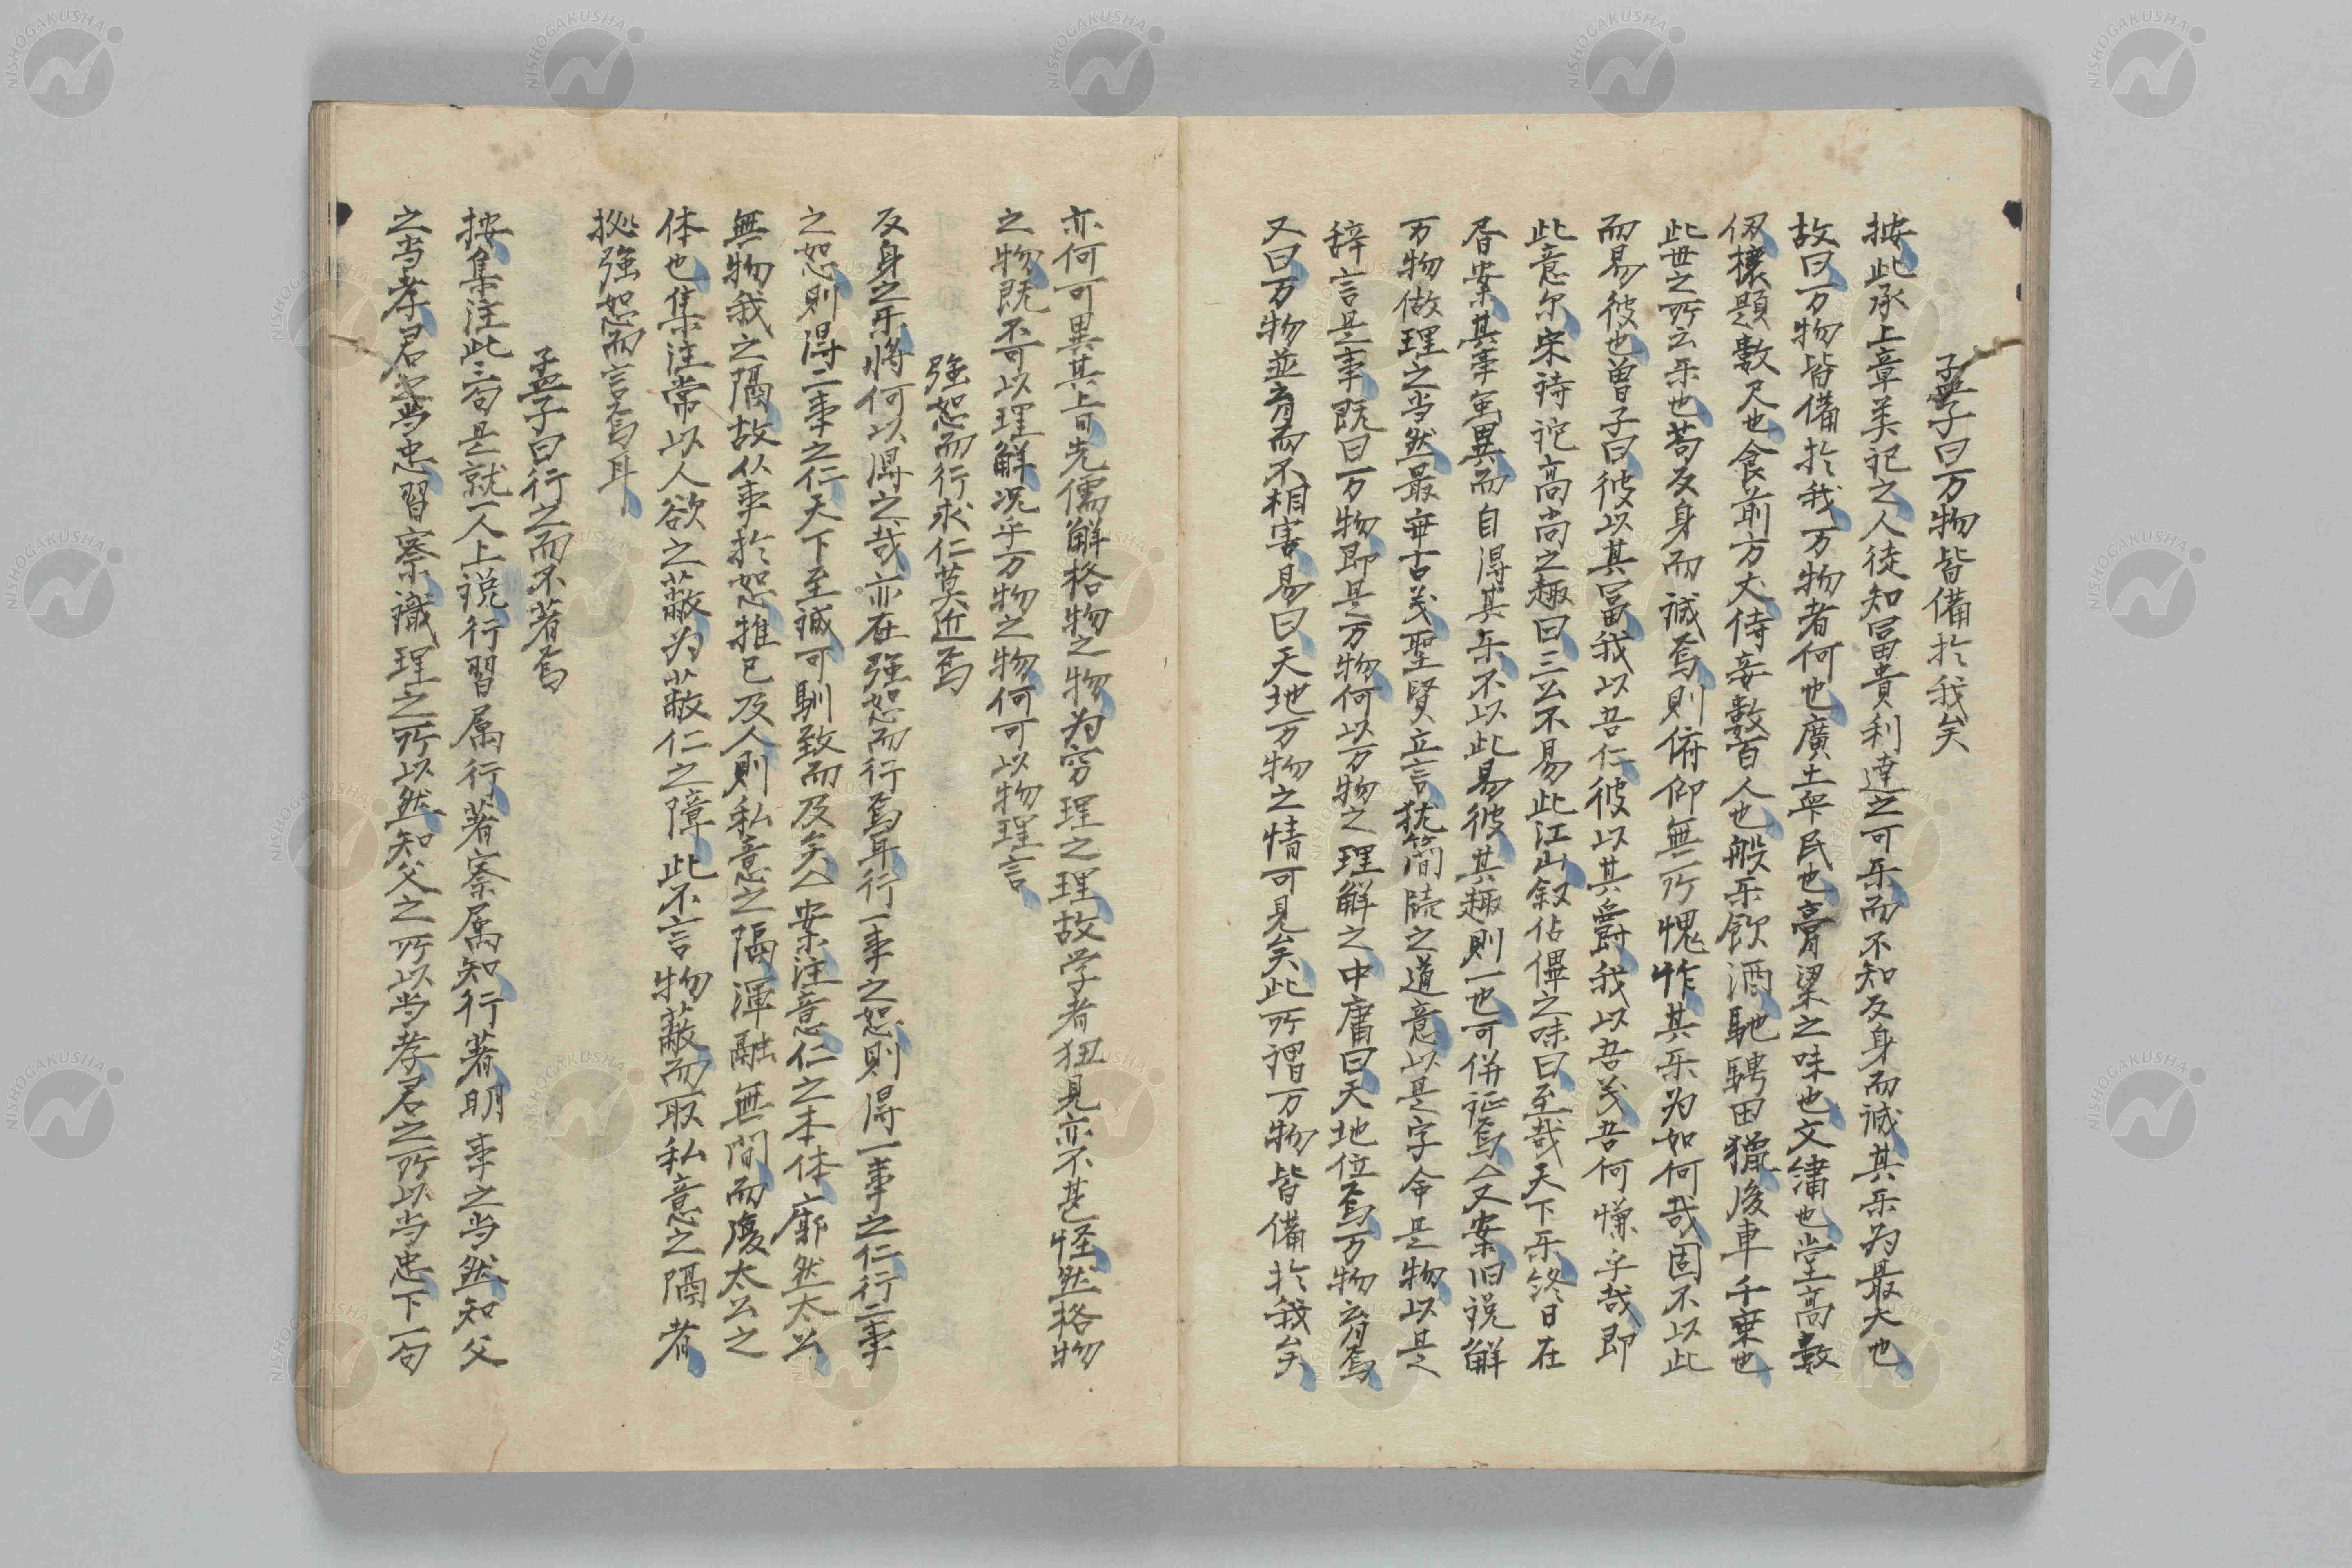 孟子曰万物皆備於我矣
按此承上章美記之人徒知冨貴利達之可乐而不知反身而诚其乐为最大也
故曰万物皆備於我万物者何也廣土衆民也膏梁之味也文繡也堂高數
仭榱題數尺也食前方丈侍妾數百人也般乐飲酒馳騁田獵後車千乗也
此世之所云乐也苟反身而誠焉則俯仰無所愧怍其乐为如何哉固不以此
而易彼也曽子曰彼以其冨我以吾仁彼以其爵我以吾义吾何慊乎哉即
此意尔宋詩詑高尚之趣曰三公不易此江山叙佔僤之味曰至哉天下乐終日在
㫪案其事虽異而自得其乐不以此易彼其趣則一也可併証焉△又案旧説解
万物做理之当然最害古义聖賢立言犹簡牘之道意以是字命是物以是
辞言是事既曰万物即是万物何以万物之理解之中庸曰天地位焉万物育焉
又曰万物並育而不相害易曰天地万物之情可見矣此所謂万物皆備於我矣
亦何可異其旨先儒解格物之物为穷理之理故学者狃見亦不甚怪然格物
之物既不可以理解况乎万物之物何可以物理言
強恕而行求仁莫近焉
反身之乐將何以得之哉亦在强恕而行焉耳行一事之恕則得一事之仁行二事
之恕則得二事之仁天下至誠可馴致而及矣△案注意仁之本体廓然太公
無物我之隔故从事於恕推己及人則私意之隔渾融無間而復太公之
体也集注常以人欲之蔽为蔽仁之障此不言物蔽而取私意之隔者
拠強恕而言焉耳
孟子曰行之而不著焉
按集注此三句是就一人上説行習属行著察属知行著明事之当然知父
之当孝君之当忠習察識理之所以然知父之所以当孝君之所以当忠下一句